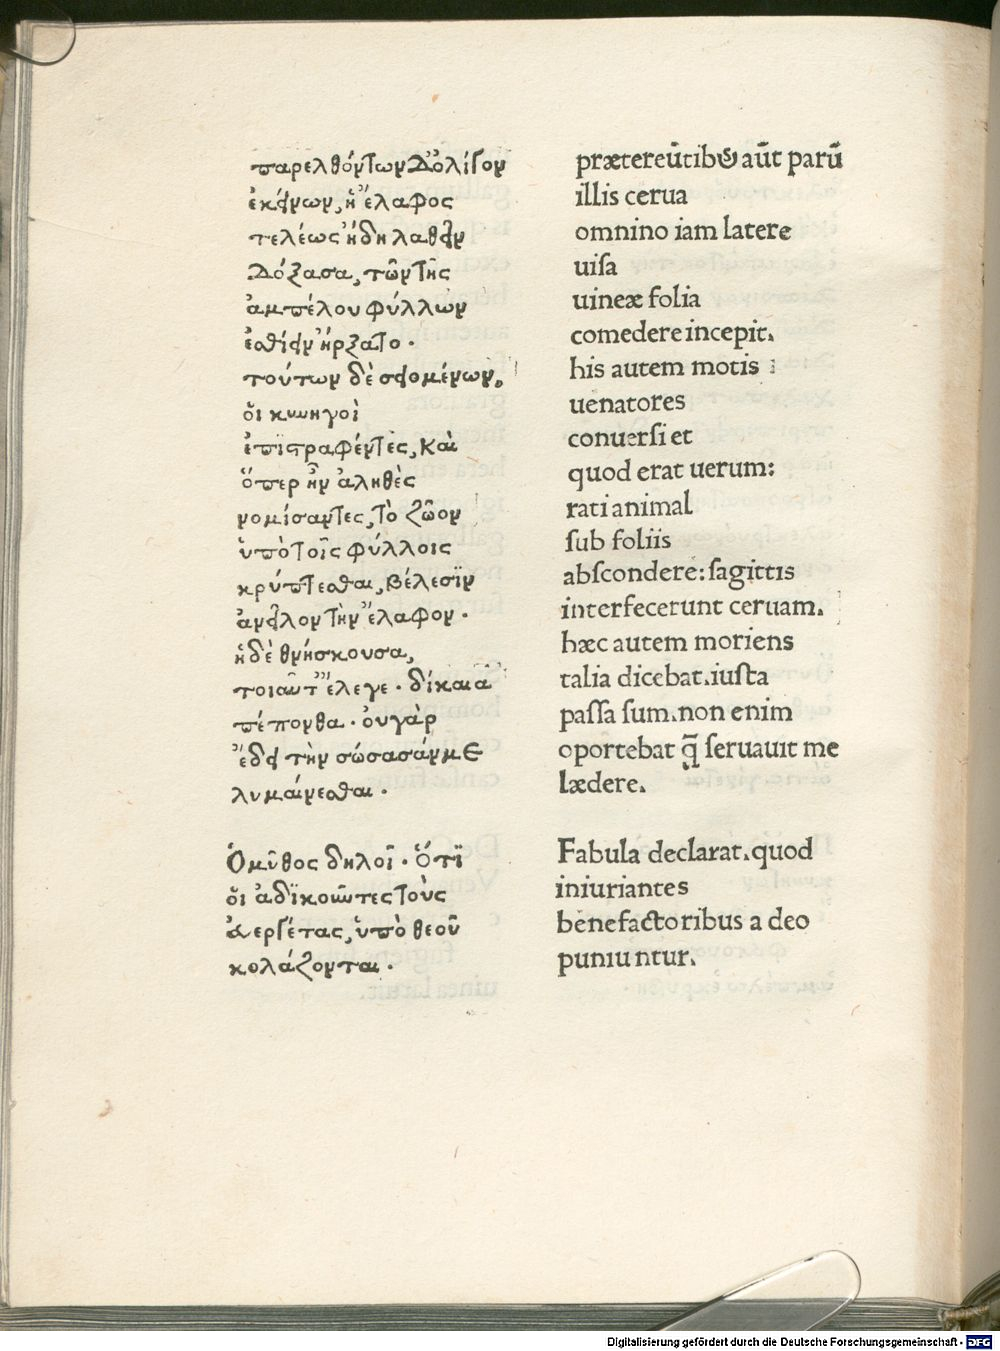 παρελθόντων δ' ὀλίγον
ἐκείνων, ἡ ἔλαφος
τελέως ἤδη λαθεῖν
δόξασα, τῶν τῆς
ἀμπέλου φύλλων
ἐσθίειν ἤρξατο.
τούτων δὲ σειομένων,
οἱ κυνηγοὶ
ἐπιστραφέντες, καὶ
ὅπερ ἦν ἀληθὲς
νομίσαντες, τὸ ζῶον
ὑπὸ τοῖς φύλλοις
κρύπτεσθαι, βέλεσϊν
ἀνεῖλον τὴν ἔλαφον.
ἡ δὲ θνήσκουσα,
τοιαῦτ' ἔλεγε. δίκαια
πέπονθα. οὐ γὰρ
ἔδει τὴν σώσασάν με
λυμαίνεσθαι.
Ὁ μῦθος δηλοῖ. ὅτϊ
οἱ ἀδϊκοῦντες τοὺς
εὐεργέτας, ὑπὸ θεοῦ
κολάζονται.
prætereũtibꝰ aũt parũ
illis cerua
omnino iam latere
uiſa
uineæ folia
comedere incepit.
his autem motis
uenatores
conuerſi et
quod erat uerum:
rati animal
ſub foliis
abſcondere: ſagittis
interfecerunt ceruam.
hæc autem moriens
talia dicebat. iuſta
paſſa ſum. non enim
oportebat q̃ ſeruauit me
lædere.
Fabula declarat. quod
iniuriantes
benefactoribus a deo
puniuntur.
Digitalisierung gefördert durch die Deutsche Forschungsgemeinschaft - DFG